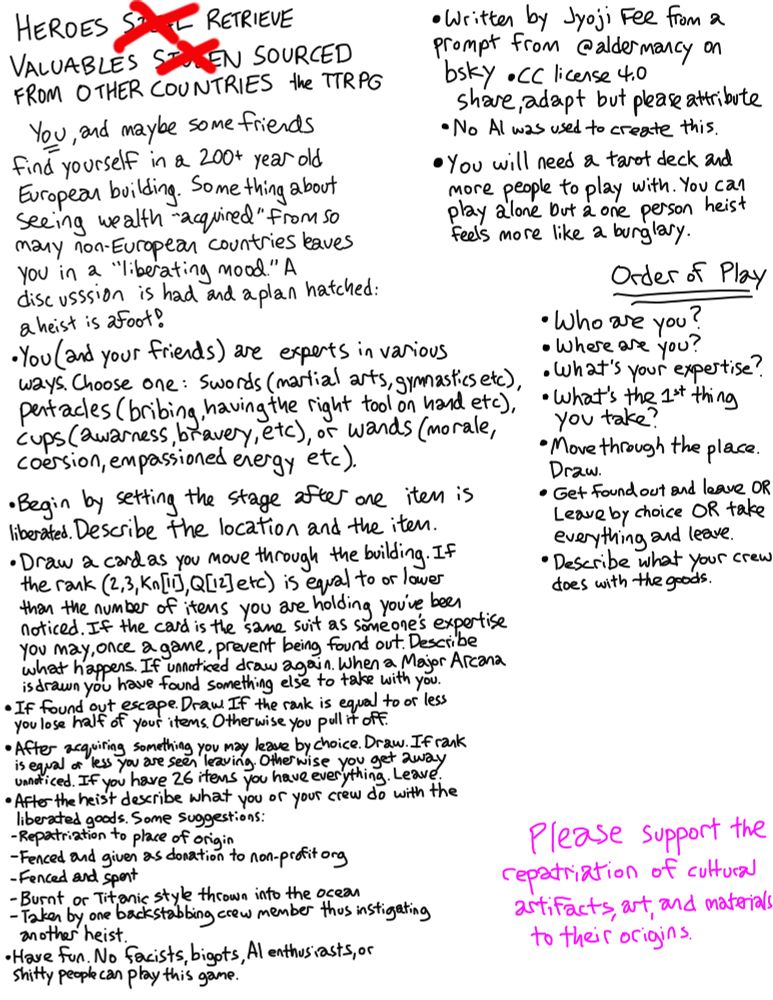 HEROES STEAL RETRIEVE
VALUABLES STOLEN SOURCED
FROM OTHER COUNTRIES the TTRPG
You, and maybe some friends
find yourself in a 200+ year old
European building. Something about
seeing wealth "acquired" from so
many non-European countries leaves
you in a "liberating mood." A
discusssion is had and a plan hatched:
a heist is afoot!
•You (and your friends) are experts in various
ways. Choose one: swords (martial arts, gymnastics etc),
pentacles (bribing, having the right tool on hand etc),
cups (awarness, bravery, etc), or wands (morale,
coersion, empassioned energy etc).
•Begin by setting the stage after one item is
liberated. Describe the location and the item.
•Draw a card as you move through the building. If
the rank (2,3,Kn[11],Q[12] etc) is equal to or lower
than the number of items you are holding you've been
noticed. If the card is the same suit as someone's expertise
you may, once a game, prevent being found out. Describe
what happens. If unnoticed draw again. When a Major Arcana
is drawn you have found something else to take with you.
•If found out escape. Draw If the rank is equal to or less
you lose half of your items. Otherwise you pull it off.
•After acquiring something you may leave by choice. Draw. If rank
is equal or less you are seen leaving. Otherwise you get away
unnoticed. If you have 26 items you have everything. Leave.
•After the heist describe what you or your crew do with the
liberated goods. Some suggestions:
-Repatriation to place of origin
-Fenced and given as donation to non-profit org
-Fenced and spent
-Burnt or Titanic style thrown into the ocean
-Taken by one backstabbing crew member thus instigating
another heist.
•Have fun. No facists, bigots, AI enthusiasts, or
shitty people can play this game.
•Written by Jyoji Fee from a
prompt from @aldermancy on
bsky •CC license 4.0
share, adapt but please attribute
•No AI was used to create this.
•You will need a tarot deck and
more people to play with. You can
play alone but a one person heist
feels more like a burglary.
Order of Play
•Who are you?
•Where are you?
•What's your expertise?
•What's the 1st thing
you take?
•Move through the place.
Draw.
•Get found out and leave OR
Leave by choice OR take
everything and leave.
•Describe what your crew
does with the goods.
Please support the
repatriation of cultural
artifacts, art, and materials
to their origins.